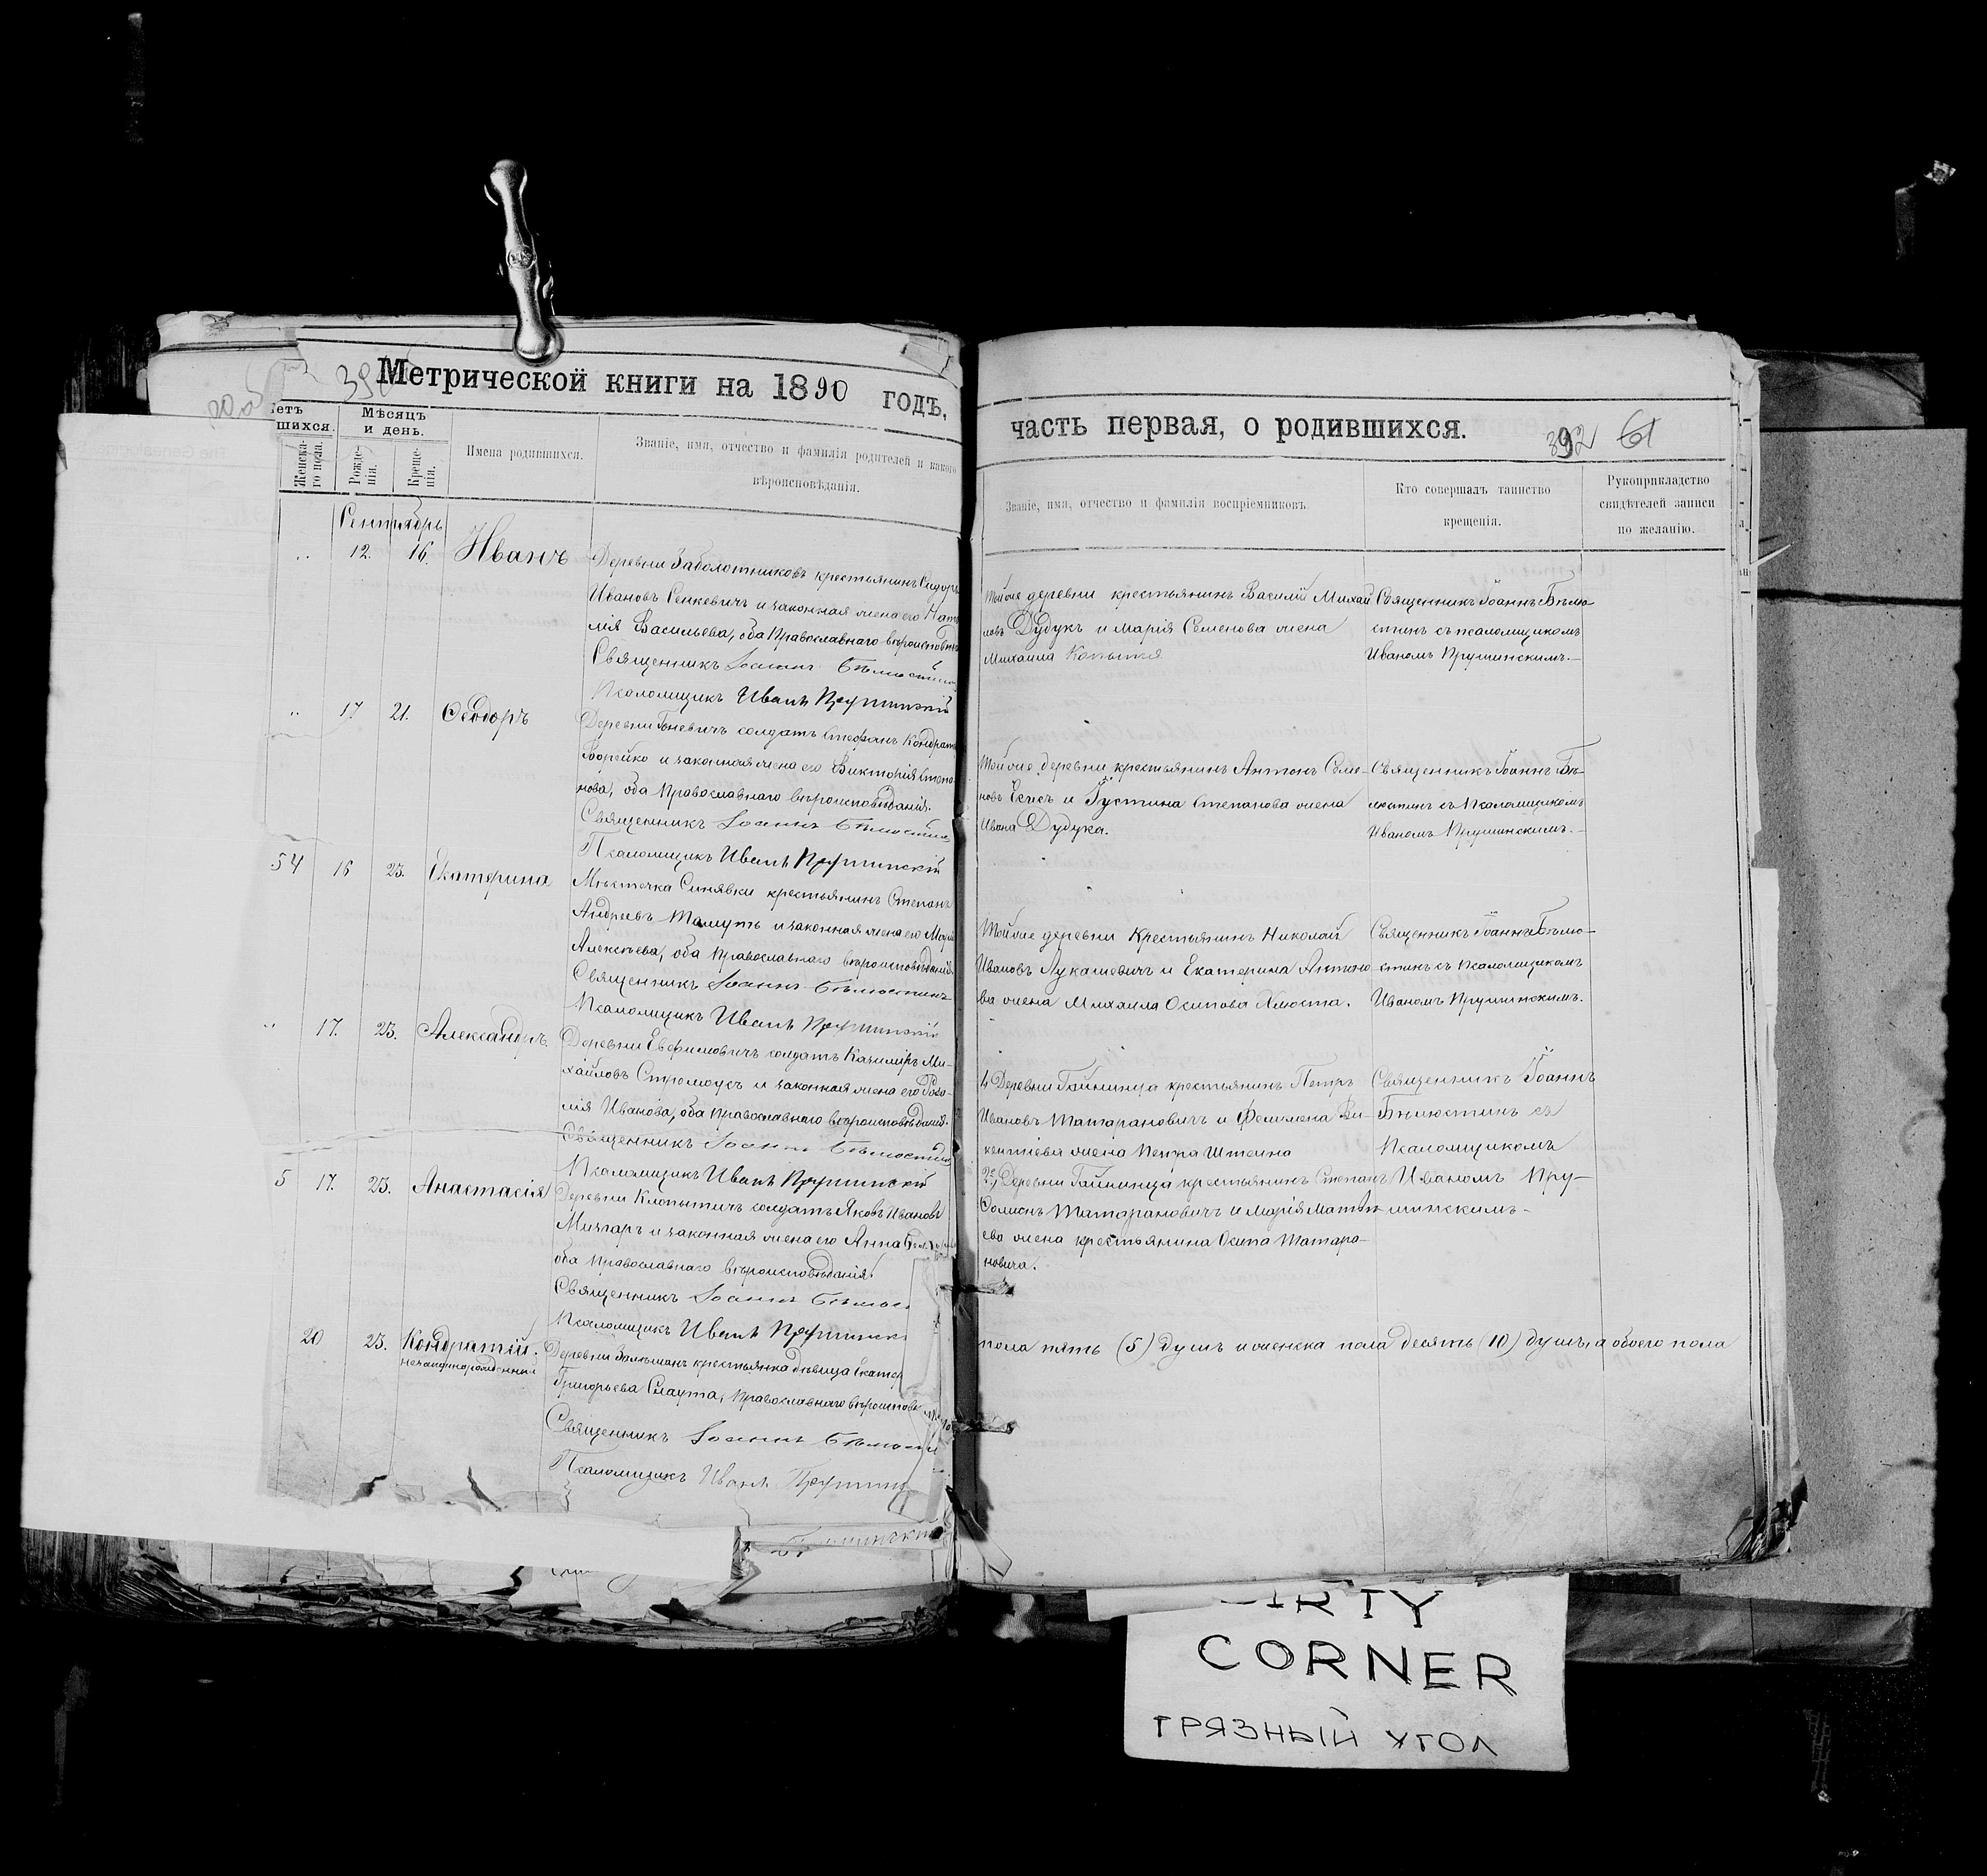 Метрической книги на 1890 годъ,
етъ
шихся.
Мѣсяцъ
и день.
Женска-
го пола.
Рожде-
нія.
Креще-
нія.
Имена родившихся.
Званіе, имя, отчество и фамилія родителей и какого
вѣроисповѣданія.
Сентябрь
12. 16. Иванъ
Деревни Заболотниковъ крестьянинъ Сидоръ
Ивановъ Сенкевичъ и законная жена его Ната
лія Васильева, оба Православнаго вѣроисповѣд
Священникъ Іоаннъ Бѣлюстинъ
Псаломщикъ Иванъ Прушинскій
17 21. Ѳеодоръ
Деревни солдатъ Стефанъ Кондрат
и законная жена его Викторія Степа
нова, оба Православнаго вѣроисповѣданія.
Священникъ Іоаннъ Бѣлюстинъ
Псаломщикъ Иванъ Прушинскій
54 16 23. Екатерина
Мѣстечка Синявки крестьянинъ Степанъ
Андреевъ и законная жена его Марія
Алексѣева, оба Православнаго вѣроисповѣданія.
Священникъ Іоаннъ Бѣлюстинъ
Псаломщикъ Иванъ Прушинскій
17. 23. Александръ.
Деревни Евфимовичъ солдатъ Казиміръ Ми-
хайловъ и законная жена его
лія Иванова, оба Православнаго вѣроисповѣданія.
Священникъ Іоаннъ Бѣлюстинъ
Псаломщикъ Иванъ Прушинскій
5 17. 23. Анастасія
Деревни Клопытичъ солдатъ Яковъ Ивановъ
и законная жена его Анна
оба Православнаго вѣроисповѣданія.
Священникъ Іоаннъ Бѣлюс
Псаломщикъ Иванъ Прушинск
20 23. Кондратій.
незаконнорожденный
Деревни крестьянка дѣвица Екатер
Григорьева Слаута, Православнаго вѣроисповѣ
Священникъ Іоаннъ Бѣлюс
Псаломщикъ Иванъ Прушин
часть первая, о родившихся. 392 61
Званіе, имя, отчество и фамилія воспріемниковъ.
Кто совершалъ таинство
крещенія.
Рукоприкладство
свидѣтелей записи
по желанію.
Той же деревни крестьянинъ Василій Михай
ловъ Дудукъ и Марія Семенова жена
Михаила Копытка
Священникъ Іоаннъ Бѣлю-
стинъ съ псаломщикомъ
Иваномъ Прушинскимъ.—
Той же деревни крестьянинъ Антонъ Семе-
новъ и Іустина Степанова жена
Ивана Дудука.
Священникъ Іоаннъ Бѣ-
люстинъ съ Псаломщикомъ
Иваномъ Прушинскимъ.—
Той же деревни Крестьянинъ Николай
Ивановъ Лукашевичъ и Екатерина Антоно
ва жена Михаила Осипова Хвоста.
Священникъ Іоаннъ Бѣлю-
стинъ съ Псаломщикомъ
Иваномъ Прушинскимъ.
Деревни Гайнинца крестьянинъ Петръ
Ивановъ Татарановичъ и Фелимена Ви-
кентіева жена Петра Штейна
Священникъ Іоаннъ
Бѣлюстинъ съ
Псаломщикомъ
Иваномъ Пру-
шинскимъ—
2, Деревни Гайнинца крестьянинъ Степанъ
Татарановичъ и Марія Матвѣ
ева жена крестьянина Осипа Татара-
новича.
пола пять (5) душъ и женска пола десять (10) душъ, а обоего пола
RTY
CORNER
ГРЯЗНЫЙ УГОЛ